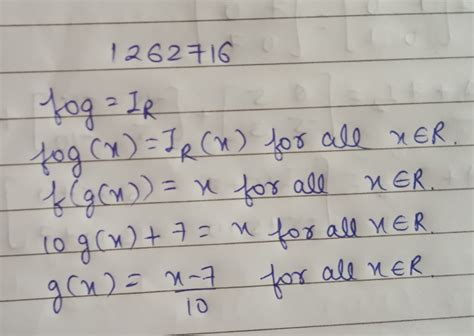 1262716
fog = I_R
fog(x) = I_R(x) for all x ∈ R.
f(g(x)) = x for all x ∈ R.
10 g(x) + 7 = x for all x ∈ R.
g(x) = \frac{x-7}{10} for all x ∈ R.